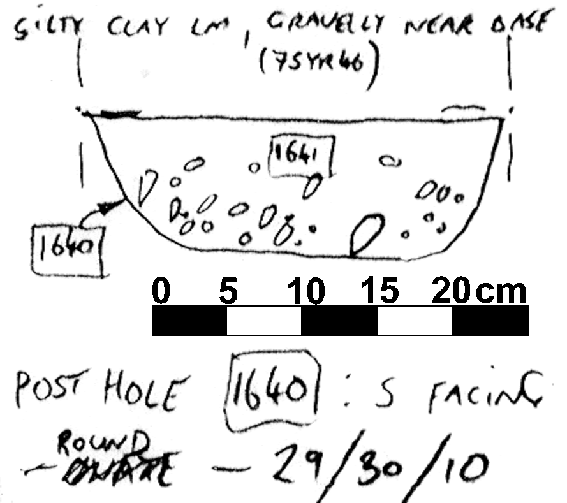 SILTY CLAY LM, GRAVELLY NEAR BASE
(75YR46)
1641
1640
0 5 10 15 20cm
POST HOLE 1640 : S FACING
ROUND
— — 29/30/10